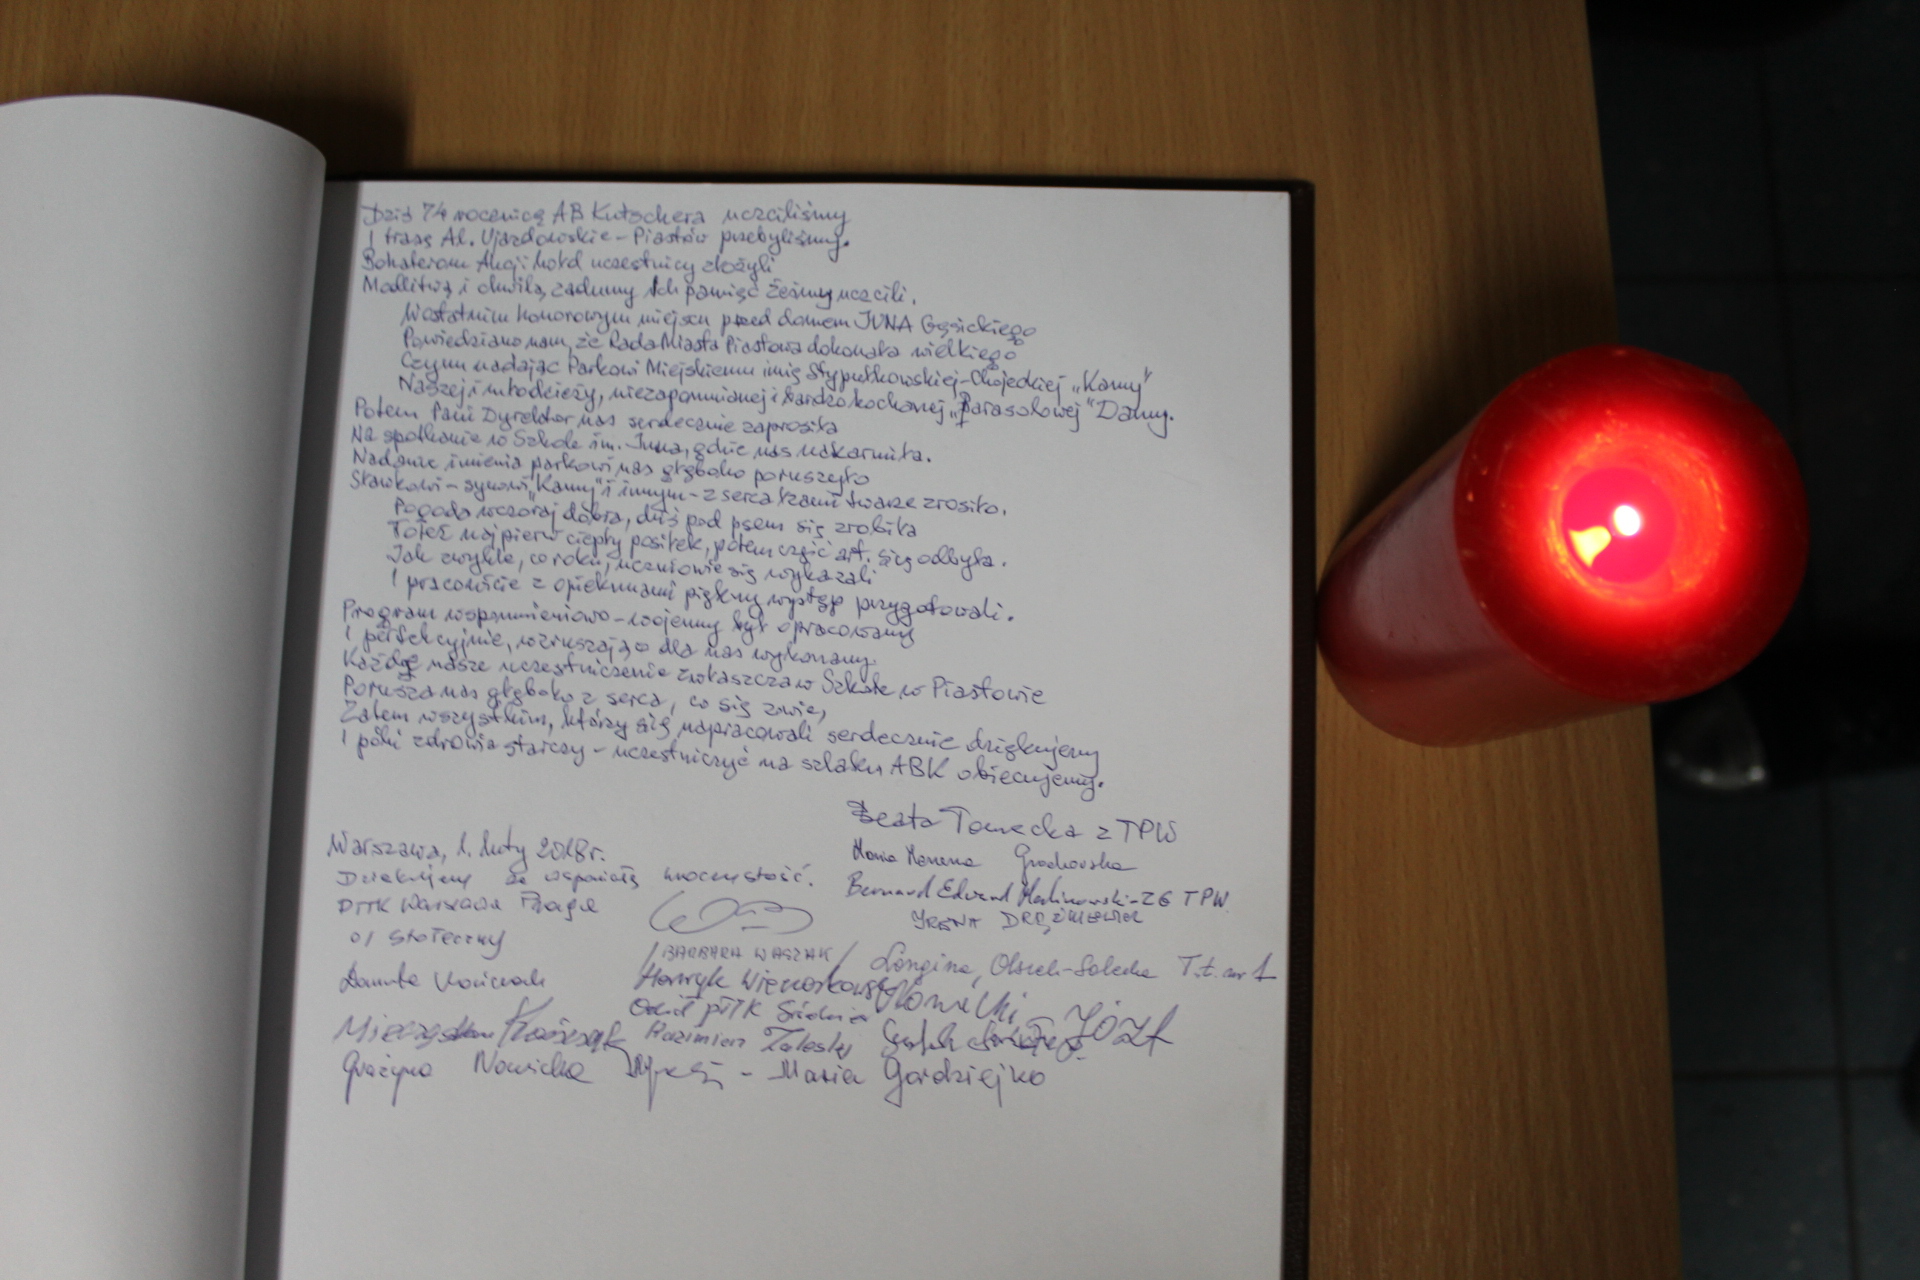 Dziś 74 rocznicę AB Kutschera uczciliśmy
I trasę Al. Ujazdowskie - Piastów przebyliśmy.
Bohaterom Akcji hołd uczestnicy złożyli
Modlitwą i chwilą zadumy Ich pamięć żeśmy uczcili.
W ostatnim honorowym miejscu przed domem JUNA Gęsickiego
Powiedziano nam, że Rada Miasta Piastowa dokonała wielkiego
Czynu nadając Parkowi Miejskiemu imię Stypułkowskiej-Chojeckiej „Kamy"
Naszej i młodzieży, niezapomnianej i bardzo kochanej „Parasolowej" Damy.
Potem Pani Dyrektor nas serdecznie zaprosiła
Na spotkanie w Szkole im. Juna, gdzie nas nakarmiła.
Nadanie imienia parkowi nas głęboko poruszyło
Sławkowi - synowi „Kamy" i innym - z serca łzami twarze zrosiło.
Pogoda wczoraj dobra, dziś pod psem się zrobiła
Toteż najpierw ciepły posiłek, potem część art. się odbyła.
Jak zwykle, co roku, uczniowie się wykazali
I pracowicie z opiekunami piękny występ przygotowali.
Program wspomnieniowo-wojenny był opracowany
I perfekcyjnie, wzruszająco dla nas wykonany.
Każde nasze uczestniczenie zwłaszcza w Szkole w Piastowie
Porusza nas głęboko z serca, co się zowie,
Zatem wszystkim, którzy się napracowali serdecznie dziękujemy
I póki zdrowia starczy - uczestniczyć na szlaku ABK obiecujemy.
Beata Tomecka z TPW
Warszawa, 1. luty 2018 r.
Maria Marzena Grochowska
Dziękujemy za wspaniałą uroczystość.
Bernard Edward Malinowski - z6 TPW
PTTK Warszawa Praga
IRENA DRĘŻKIEWICZ
o/ Stołeczny
/BARBARA WASZAK/
Longina Olszek-Solecka T.t. nr 1
Danuta Kończak
Henryk Więckowski
Oddz PTTK
Mieczysław
Kazimierz Zaleski
JÓZF
Grażyna Nowicka
Maria Gordziejko